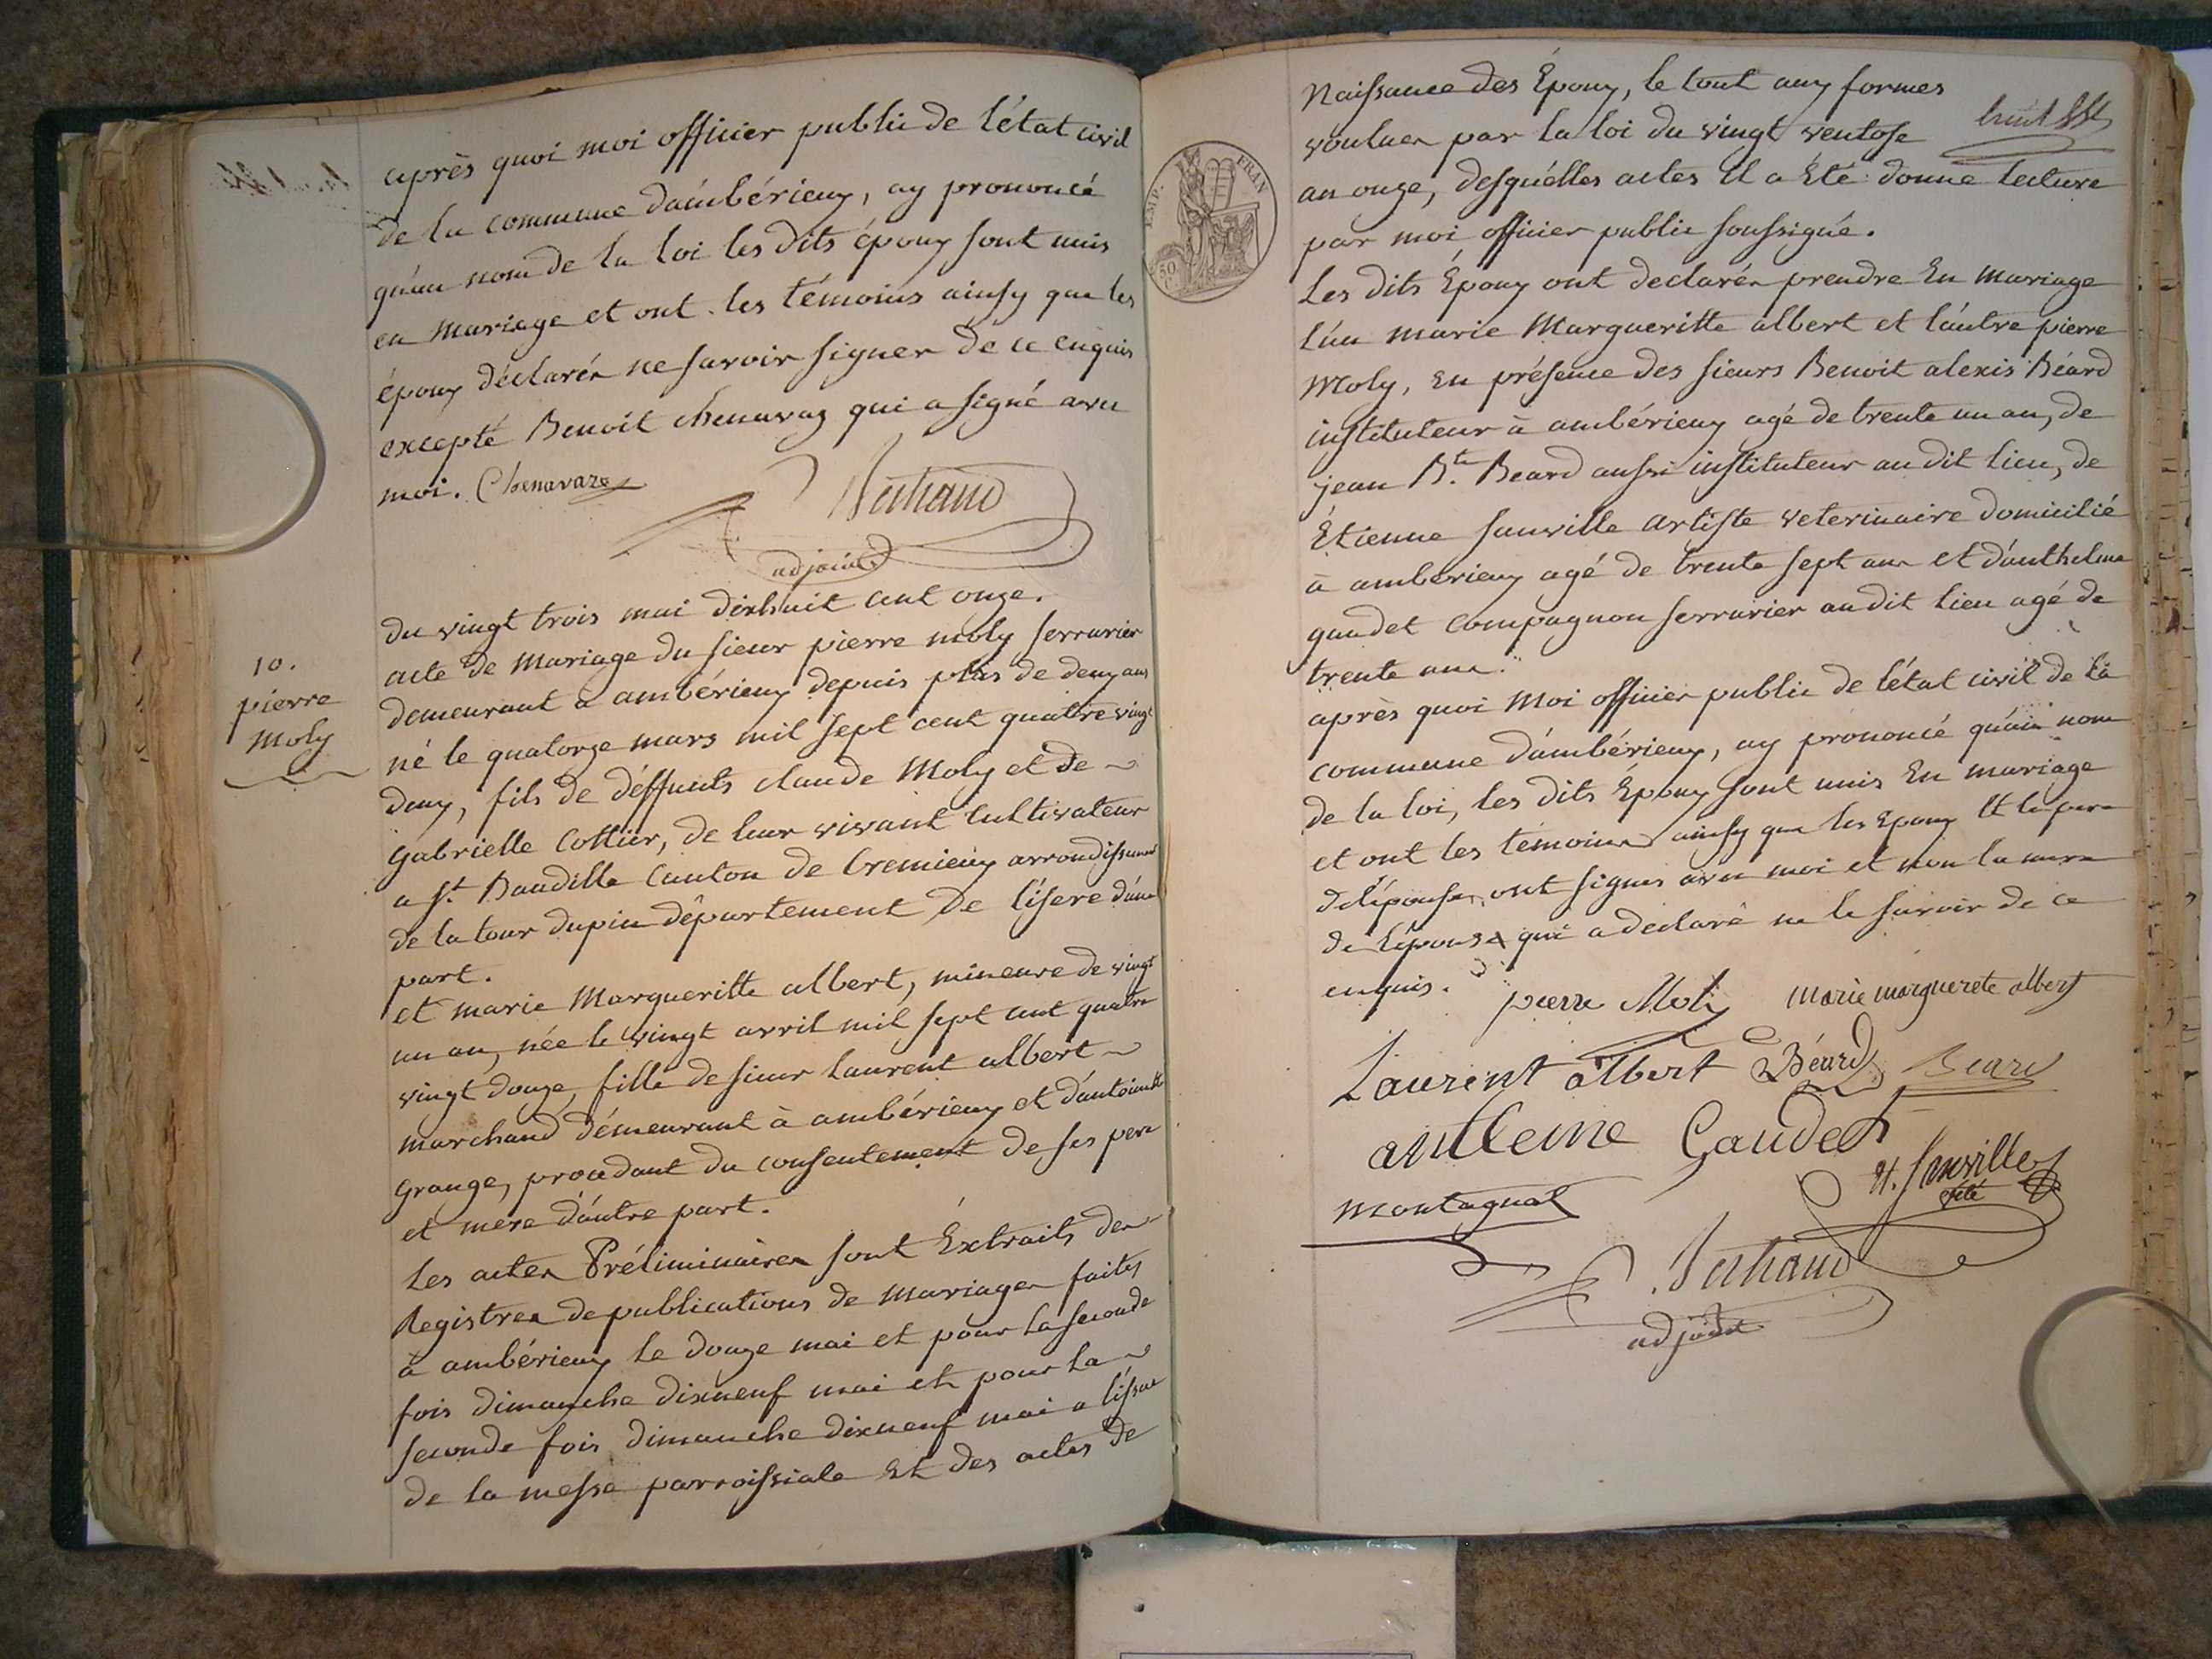 après quoi moi officier public de l'état civil
de la commune d'ambérieux, ay prononcé
qu'au nom de la loi les dits époux sont unis
en mariage et ont les témoins ainsy que les
époux déclarés ne savoir signer de ce enquis
excepté Benoit chenavaz qui a signé avec
moi. Chenavaz
adjoint
10.
pierre
Moly
du vingt trois mai dixhuit cent onze.
acte de Mariage du sieur pierre moly serrurier
demeurant a ambérieux depuis plus de deux ans
né le quatorze mars mil sept cent quatre vingt
deux, fils de deffunts claude Moly et de
Gabrielle Cottier, de leur vivant cultivateur
a St. Baudille Canton de Cremieux arrondissement
de la tour dupin département de l'isere d'une
part.
et marie Margueritte albert, mineure de vingt
un an, née le vingt avril mil sept cent quatre
vingt douze, fille de sieur Laurent albert
marchand démeurant à ambérieux et d'antoinette
Grange, procédant du consentement de ses pere
et mere d'autre part.
Les actes Préliminaires sont Extraits des
Registres de publications de Mariages faites
à ambérieux le douze mai et pour la seconde
fois dimanche dixneuf mai et pour la
seconde fois dimanche dixneuf mai a l'issue
de la messe parroissiale Et des actes de
EMP. FRAN
50
C
Naissance des Époux, le tout aux formes
huit
voulues par la loi du vingt ventose
an onze, desquélles actes il a Été donné lecture
par moi officier public soussigné.
Les dits Époux ont declarés prendre En Mariage
L'un marie Margueritte albert et l'autre pierre
Moly, En présence des sieurs Benoit alexis Béard
instituteur à ambérieux agé de trente un an, de
jean Bte. Beard aussi instituteur au dit lieu, de
Étienne sauville artiste veterinaire domicilié
à ambérieux agé de trente sept ans et d'anthelme
gaudet compagnon serrurier au dit lieu agé de
trente ans.
après quoi Moi officier public de l'état civil de la
commune d'ambérieux, ay prononcé qu'au nom
de la loi, les dits Époux sont unis En mariage
et ont les témoins ainsy que les Epoux Et le pere
de l'épouse, ont signés avec moi et non la mere
de l'épouse qui a declaré ne le savoir de ce
enquis.
pierre Moly marie marguerete albert
Laurent albert Béard Beard
antleme Gaudet
sauville
montagnat
adjoint